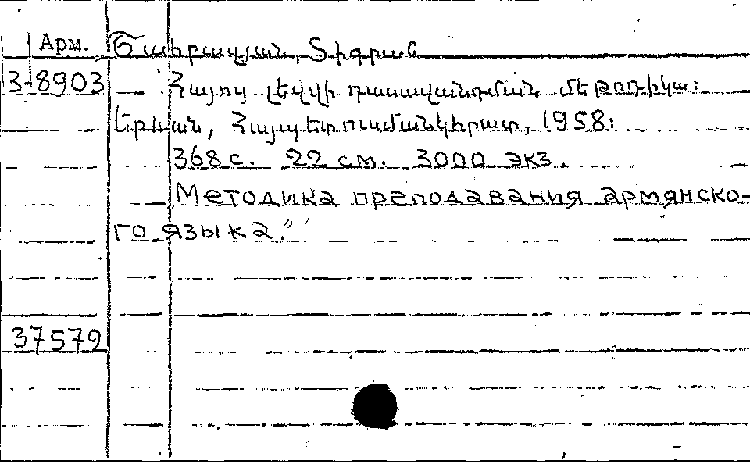 Арм. Շահրազյան, Տիգրան
3-8903 — Հայոց լեզվի դասավանդման մեթոդիկա:
Երևան, Հայպետուսմանկհրատ, 1958:
368 с. 22 см. 3000 экз.
— Методика преподавания армянско-
го языка."
37579